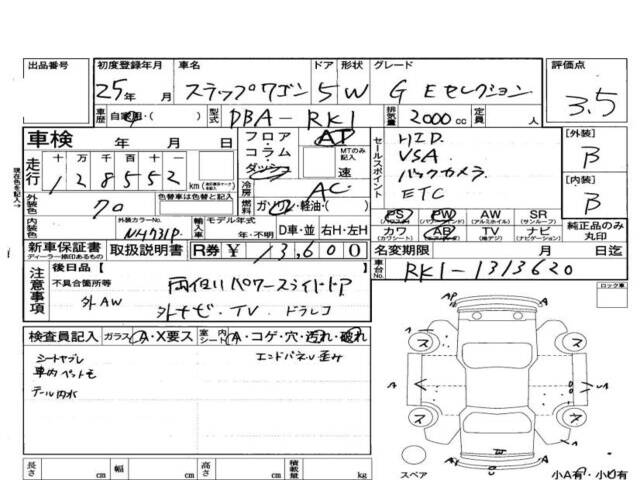 出品番号 初度登録年月 車名 ドア 形状 グレード 評価点
25年 月 ステップワゴン 5 W G Eセレクション 3.5
車歴 自家用・( ) 型式 DBA-RK1 排気量 2000cc 定員 人
車検 年 月 日 フロア・コラム・ダッシュ AT MTのみ記入 速
セールスポイント HID
VSA
バックカメラ
ETC
[外装] B
[内装] B
現在色を記入→
走行 十 万 千 百 十 一
128552 km
冷房 AC
外装色 70 色替車は色替と記入 燃料 ガソリン・軽油・( )
PS PW AW SR 純正品のみ丸印
(パワステ) (パワーウインド) (アルミホイール) (サンルーフ)
カワ AB TV ナビ
(カワシート) (エアーバッグ) (地デジ) (ナビゲーション)
内装色 外装カラーNo. N4731P 輸入車 モデル年式 年・不明 D車・並 右H・左H
新車保証書 取扱説明書 R券 ¥ 13,600 名変期限 月 日迄
ディーラー捺印あるもの
車台No. RK1-1313620
注意事項 後日品[ ]
不具合箇所等 両側パワースライドドア
外AW 外ナビ・TV・ドラレコ
ロック車
検査員記入 ガラス A・X要ス 室内 A・コゲ・穴・汚れ・破れ
シートヤブレ エンドパネル歪み
車内ペットモ
テール内水
長さ cm 幅 cm 高さ cm 積載量 kg
スペア 小A有・小U有